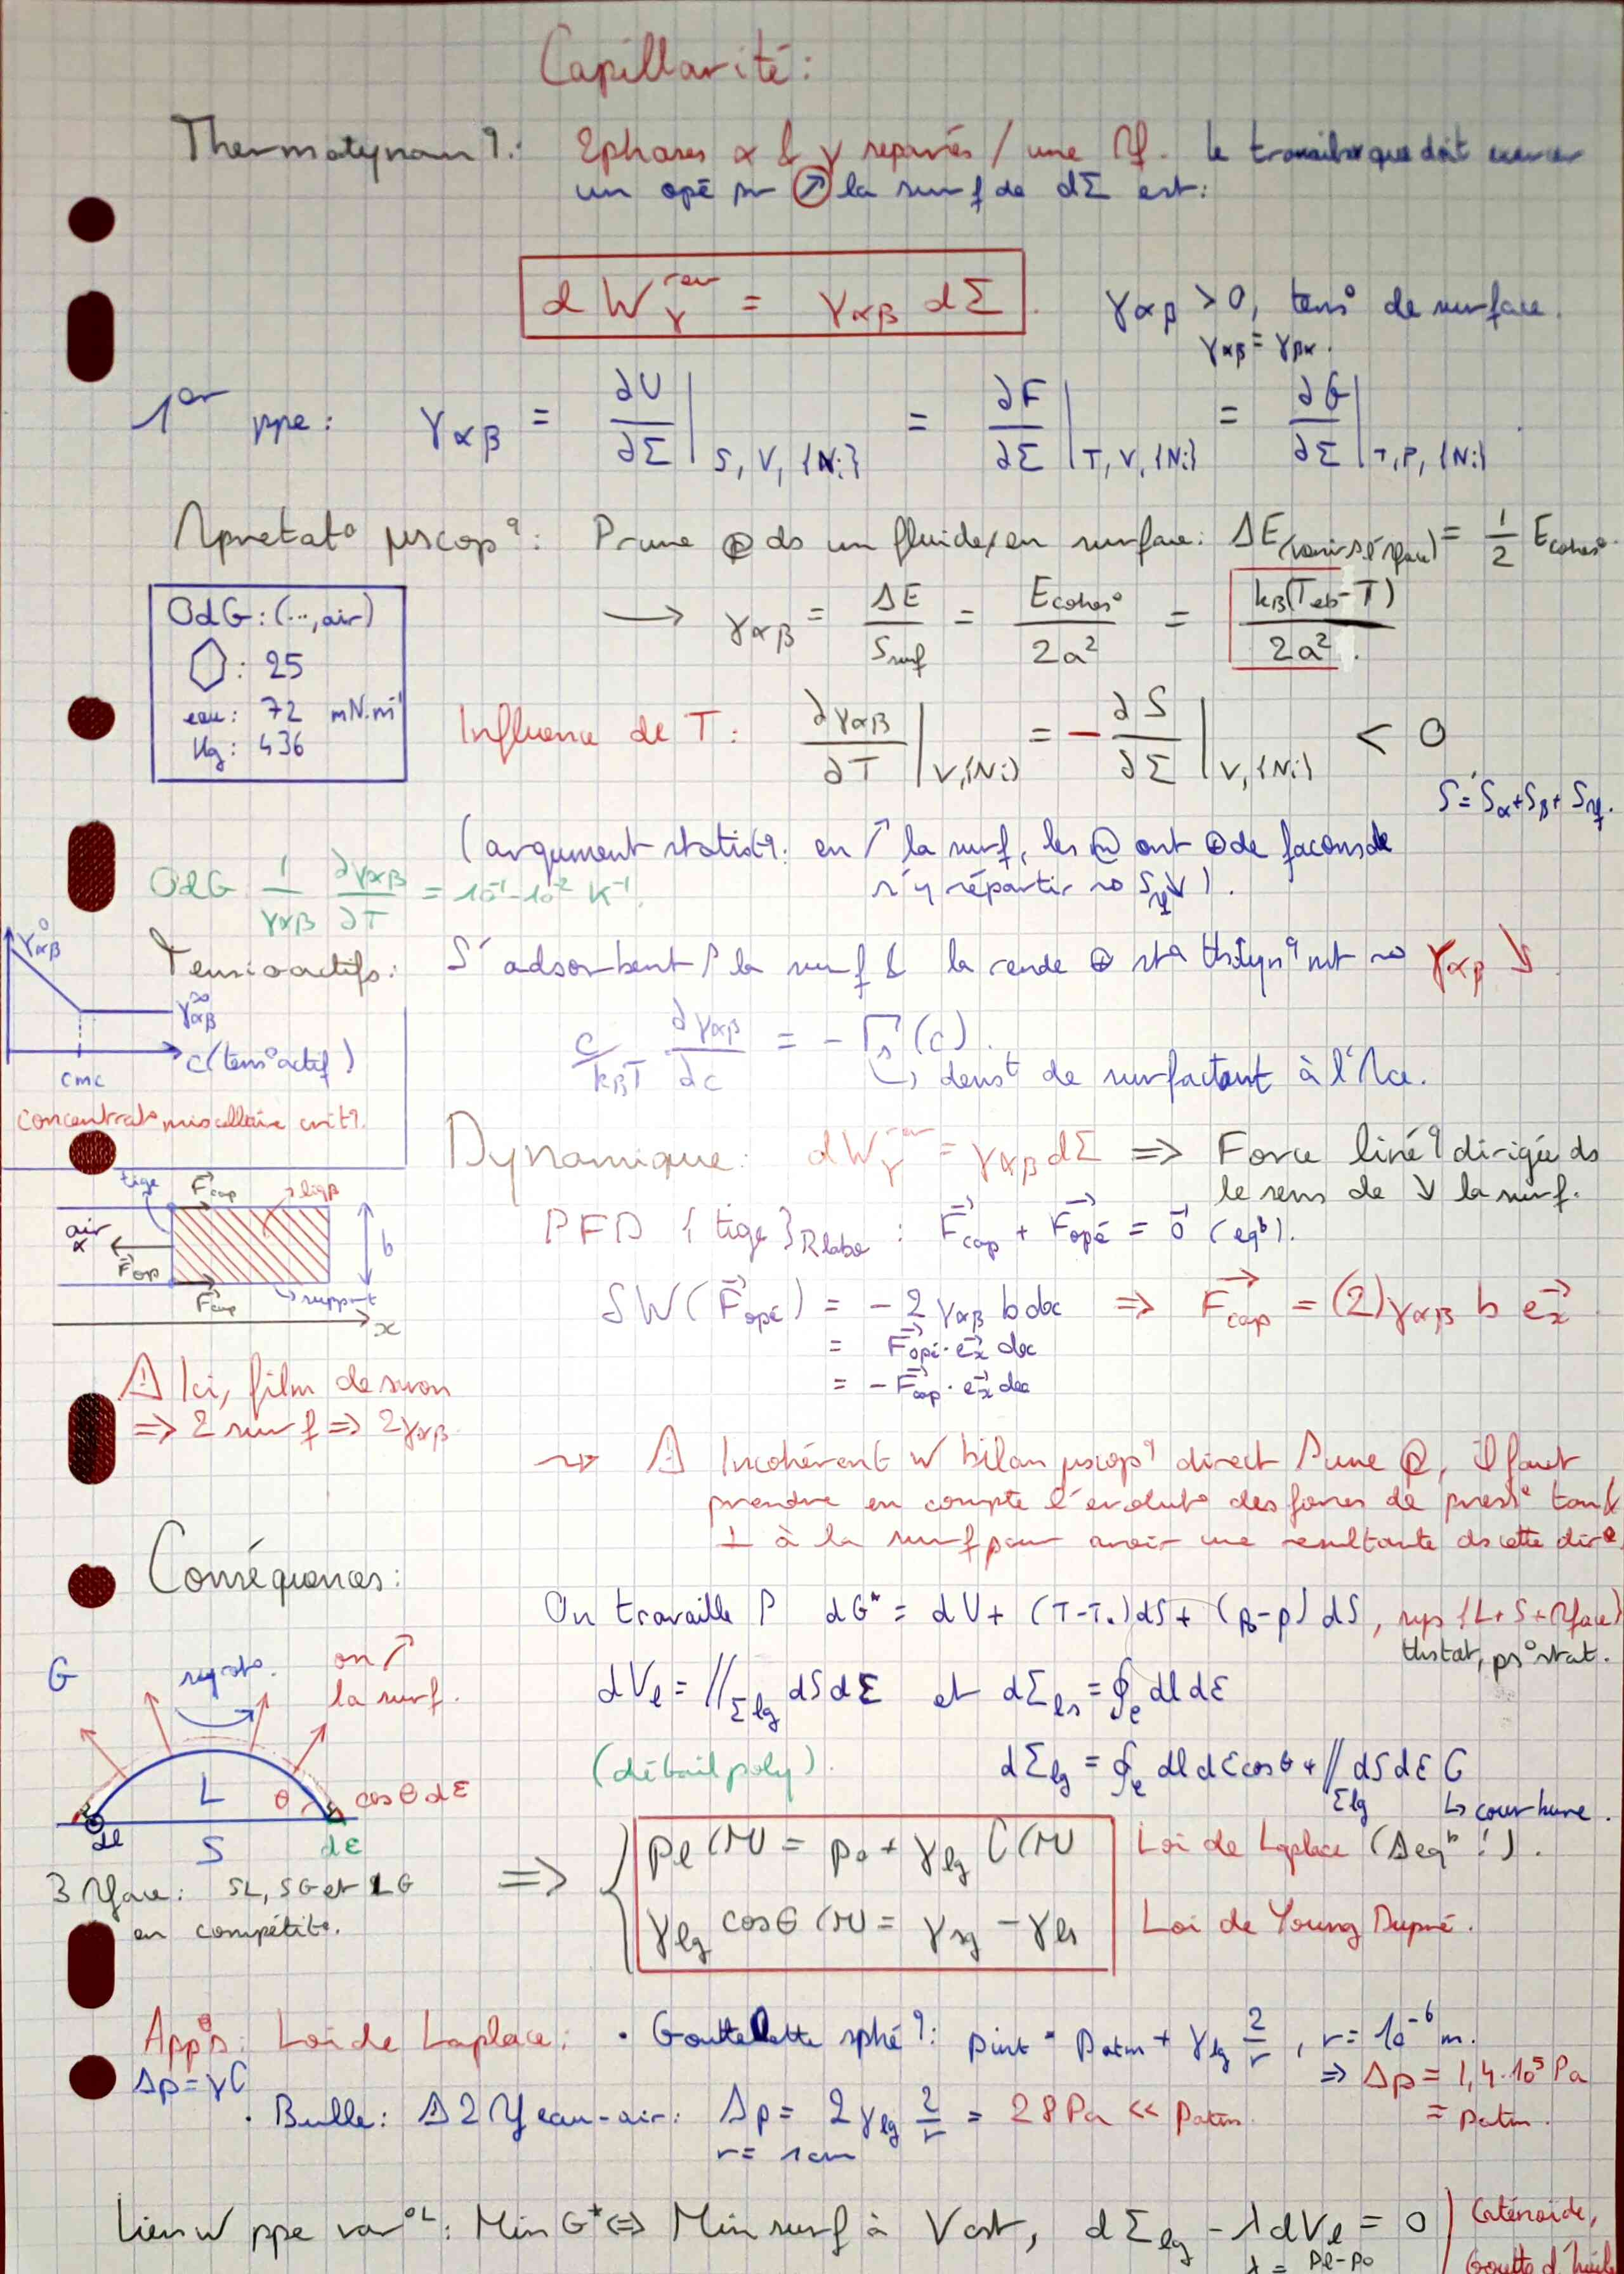 Capillarité :
Thermodynam q. : 2 phases α & γ séparés / une If. Le travail que doit exercer
un opé pr ↗ la surf de dΣ est :
d W_γ^rev = γαβ dΣ . γαβ > 0, tens° de surface.
γαβ = γβα.
1er ppe : γαβ = ∂U/∂Σ|S, V, {Ni} = ∂F/∂Σ|T, V, {Ni} = ∂G/∂Σ|T, P, {Ni} .
µscop q : Pr une ds un fluide, en surface : ΔE = 1/2 Ecohes°
→ γαβ = ΔE/Ssurf = Ecohes°/2a² = kB(Teb-T)/2a² .
OdG : (..., air)
: 25
eau : 72 mN.m⁻¹
Hg : 436
Influence de T : ∂γαβ/∂T|V,{Ni} = - ∂S/∂Σ|V,{Ni} < 0
S = Sα + Sβ + SIf.
(argument statist q : en ↗ la surf, les ont ⊕ de façons de
s'y répartir ⇝ SIf ).
OdG 1/γαβ ∂γαβ/∂T = 10⁻¹-10⁻² K⁻¹.
γαβ⁰
γαβ^∞
c(tens°actif)
cmc
concentrat° miscellaire crit q.
Tensioactifs : S'adsorbent à la surf & la rende ⊕ sta ⇝ γαβ ↘
c/kBT ∂γαβ/∂c = - Γs (c).
↳ densᵗ de surfactant à l'Ice.
Dynamique : dW_γ^rev = γαβ dΣ ⇒ Force liné q dirigée ds
le sens de ↘ la surf.
tige Fcap liqβ
air α Fop b
Fcap support
x
PFD {tige}Rlabo : Fcap + Fopé = 0 (eqᵇ).
δW(Fopé) = - 2 γαβ b dx ⇒ Fcap = (2)γαβ b ex
= Fopé . ex dx
= - Fcap . ex dx
⚠ Ici, film de savon
⇒ 2 surf ⇒ 2γαβ
⇝ ⚠ Incohérent w bilan µscop q direct une , il faut
prendre en compte l'évolut° des forces de press° tan &
⊥ à la surf pour avoir une resultante ds cette dir°
Conséquences :
On travaille dG* = dU + (T-T₀)dS + (p₀-p) dS, sys {L+S+Iface}
thstat, ps°stat.
dVℓ = ∬Σℓg dS dε et dΣℓs = ∮e dl dε
(détail poly). dΣℓg = ∮e dl dε cosθ + ∬Σℓg dS dε C
↳ courbure.
G on ↗
la surf.
L θ cosθ dε
dl S dε
3 Iface : SL, SG et LG
en compétit°.
⇒ { pℓ(M) = p₀ + γℓg C(M) Loi de Laplace (Δeqᵇ !).
γℓg cosθ(M) = γsg - γℓs Loi de Young Dupré.
App°s : Loi de Laplace : • Gouttelette sphé q : pint = patm + γℓg 2/r , r = 10⁻⁶ m.
Δp = γC ⇒ Δp = 1,4.10⁵ Pa
= patm.
• Bulle : ⚠ 2 If eau-air : Δp = 2γℓg 2/r = 28 Pa << patm
r = 1cm
Lien w ppe var°L : Min G* ⇔ Min surf à V cst, dΣℓg - λ dVℓ = 0 Caténoïde,
λ = pℓ-p₀ Goutte d'huile